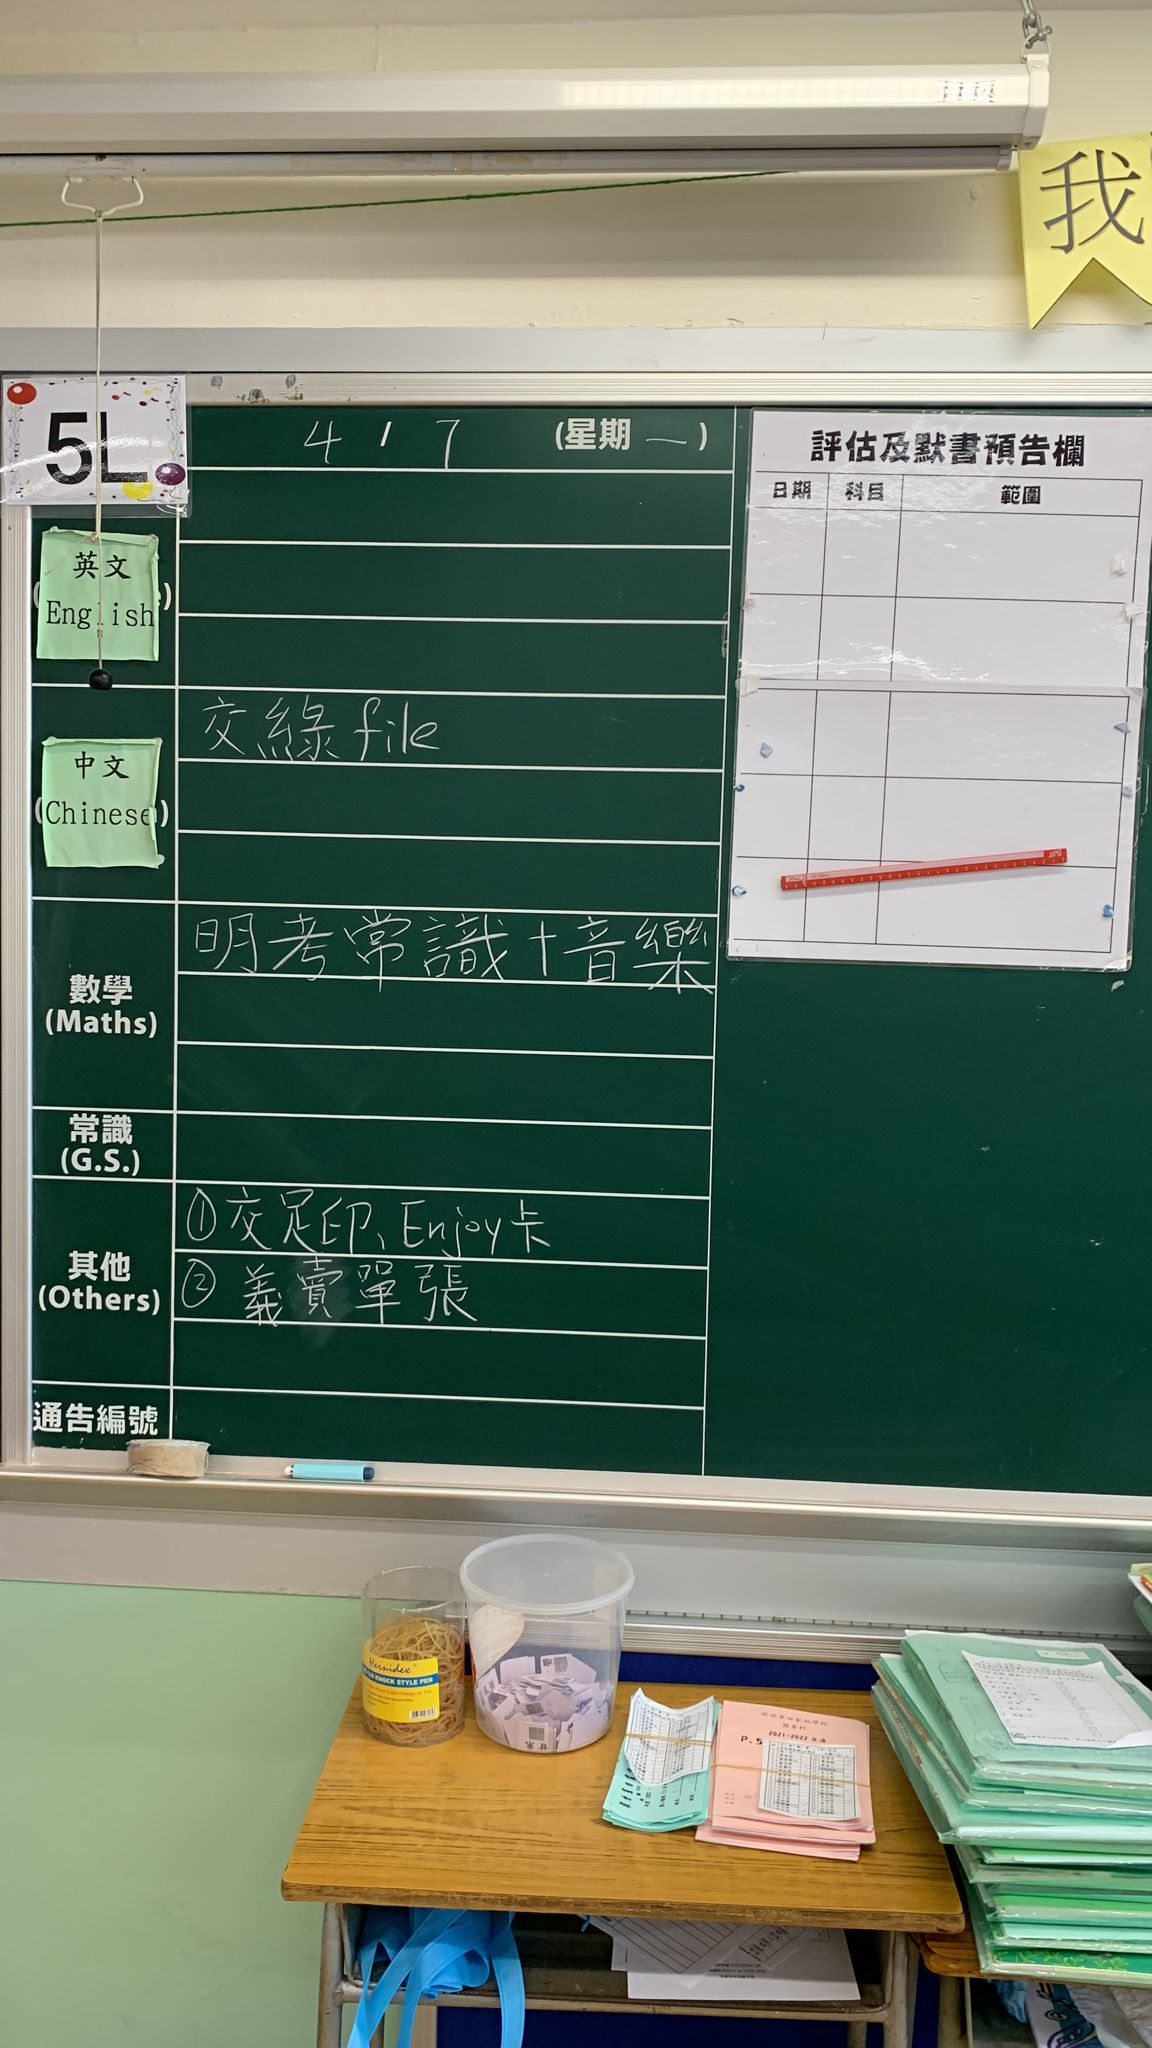 我
5L
4 / 7 (星期一)
評估及默書預告欄
日期 科目 範圍
英文
English
交綠file
中文
(Chinese)
明考常識+音樂
數學
(Maths)
常識
(G.S.)
①交足印、Enjoy卡
②義賣單張
其他
(Others)
通告編號
Hernidex
KNOCK STYLE PEN
2021-2022 年度
P.5